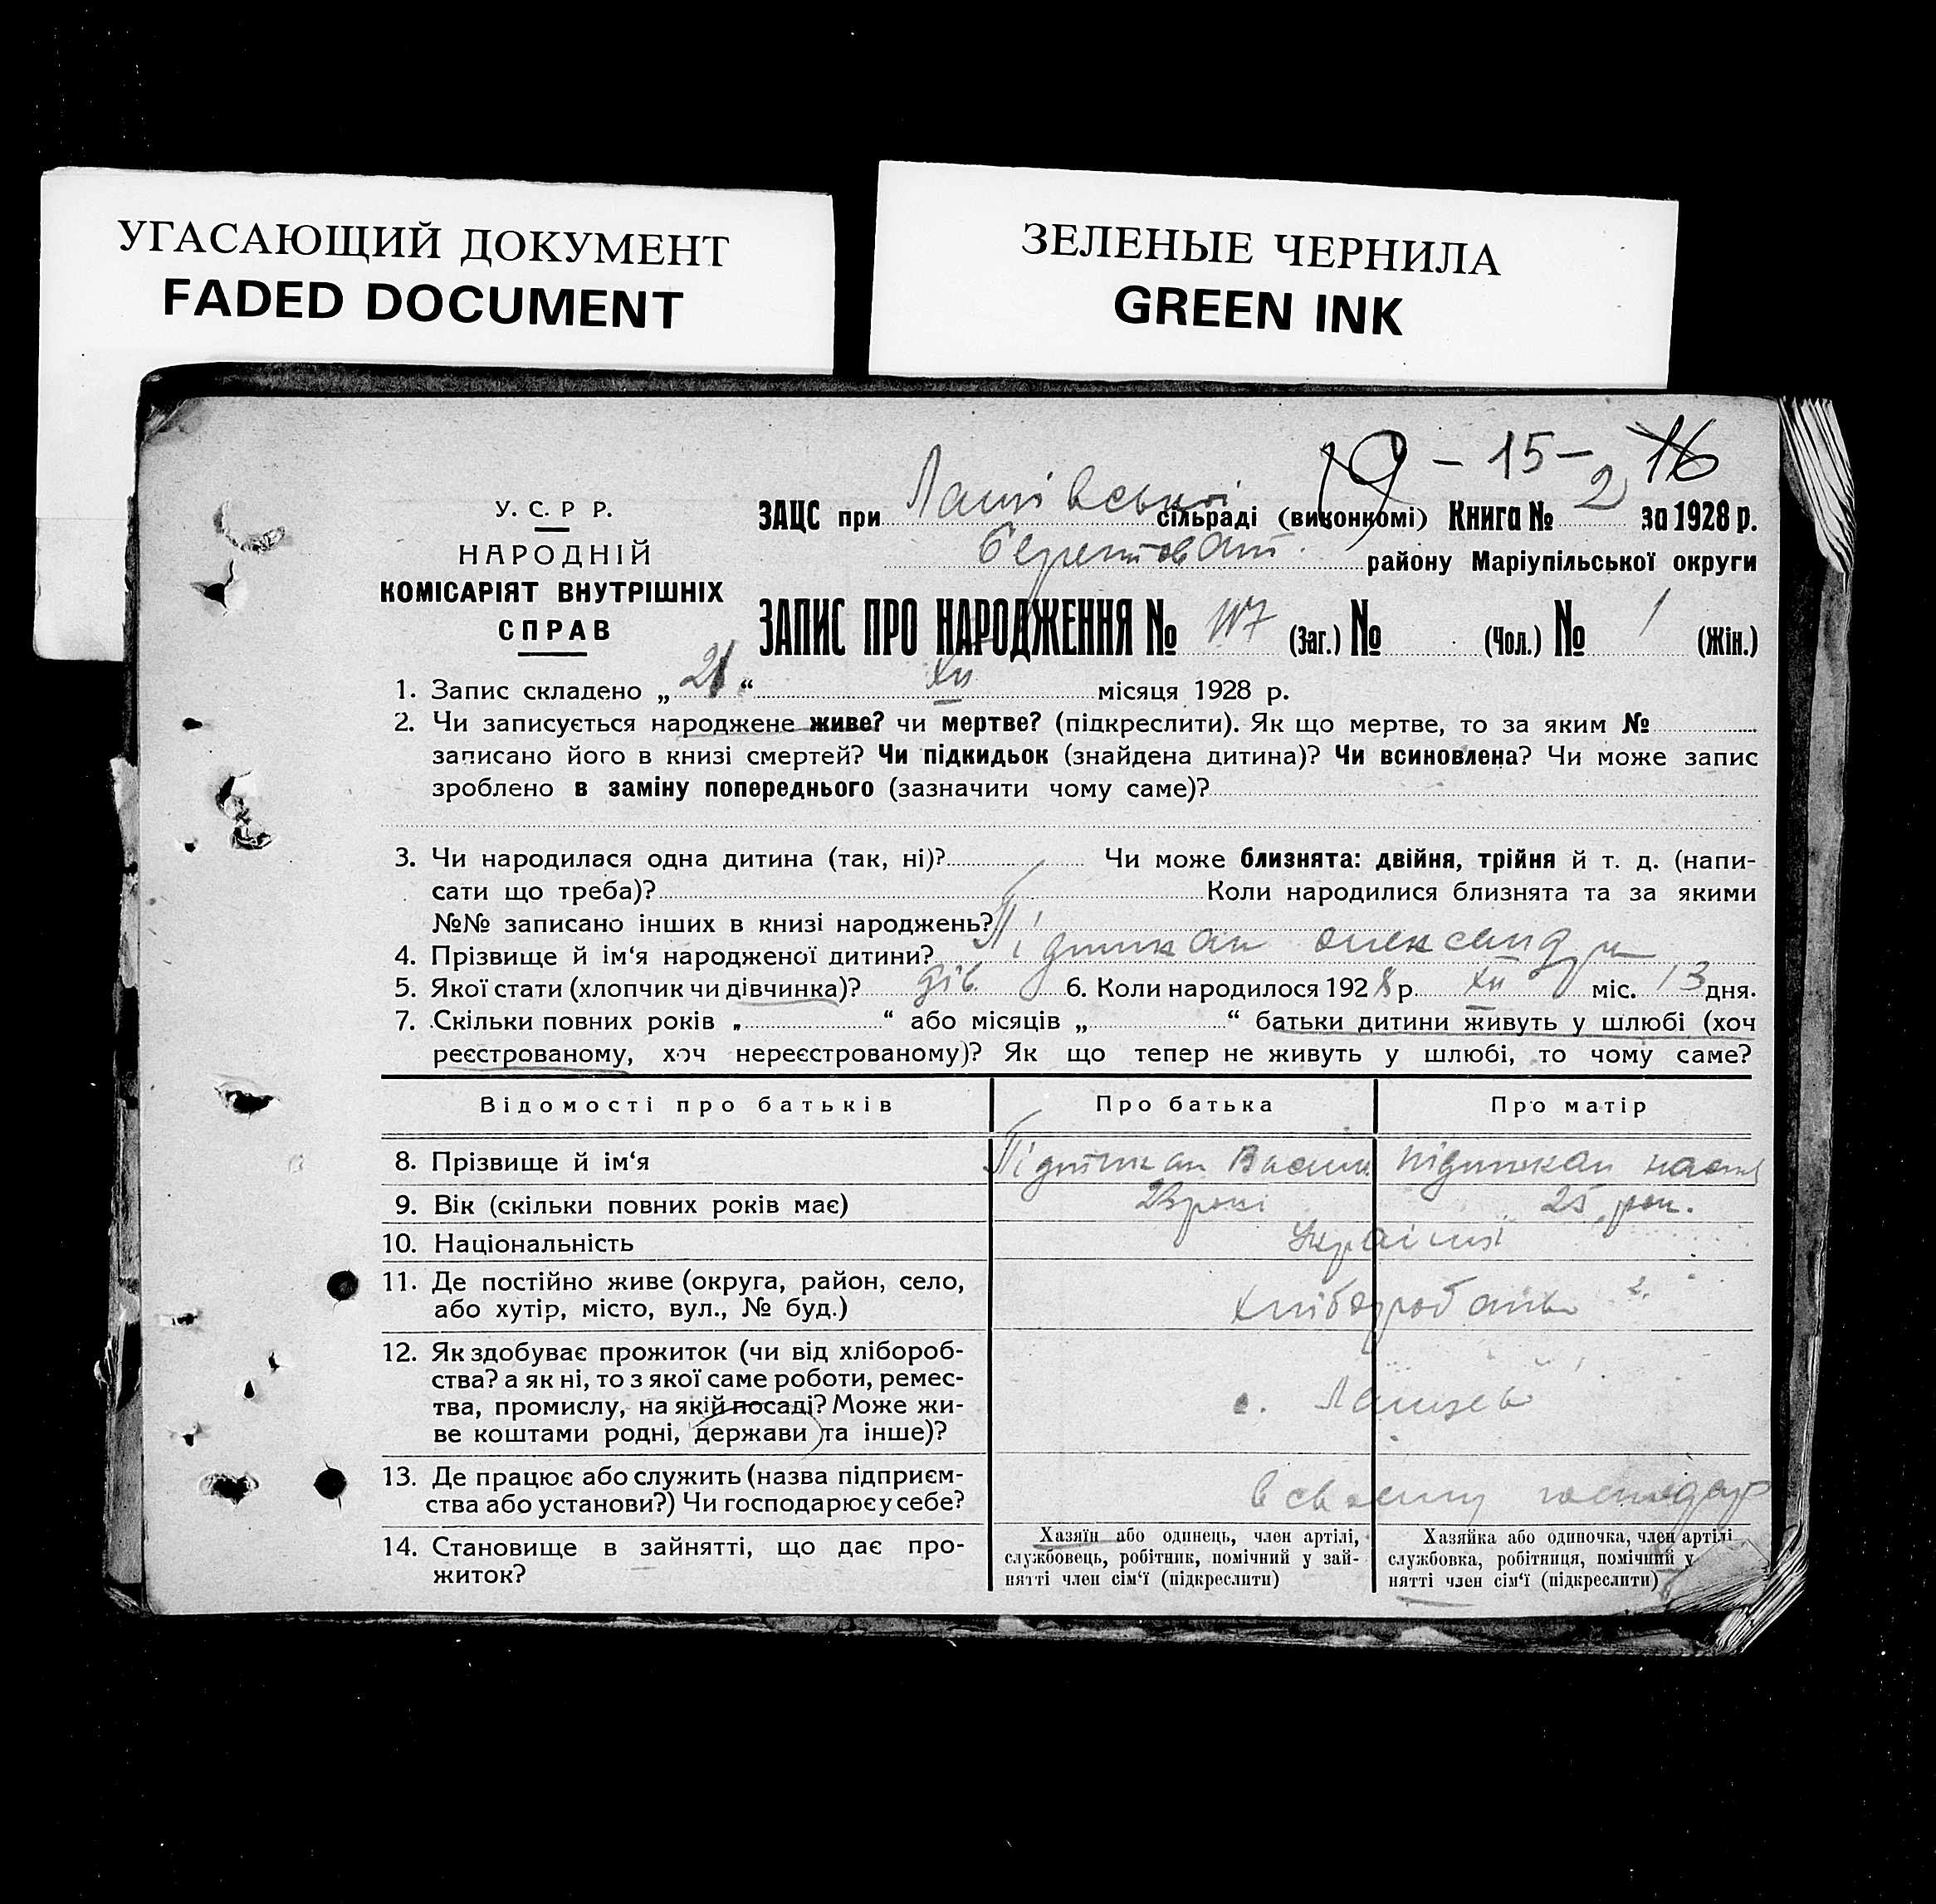 УГАСАЮЩИЙ ДОКУМЕНТ
FADED DOCUMENT
ЗЕЛЕНЫЕ ЧЕРНИЛА
GREEN INK
19 – 15 – 16
У. С. Р Р.
НАРОДНІЙ
КОМІСАРІЯТ ВНУТРІШНІХ
СПРАВ
ЗАЦС при сільраді (виконкомі) Книга № 2 за 1928 р.
району Маріупільської округи
ЗАПИС ПРО НАРОДЖЕННЯ № (Заг.) № (Чол.) № 1 (Жін.)
1. Запис складено „ 21 “ XII місяця 1928 р.
2. Чи записується народжене живе? чи мертве? (підкреслити). Як що мертве, то за яким №
записано його в книзі смертей? Чи підкидьок (знайдена дитина)? Чи всиновлена? Чи може запис
зроблено в заміну попереднього (зазначити чому саме)?
3. Чи народилася одна дитина (так, ні)? Чи може близнята: двійня, трійня й т. д. (напи-
сати що треба)? Коли народилися близнята та за якими
№№ записано інших в книзі народжень?
4. Прізвище й ім‘я народженої дитини? Олександра
5. Якої стати (хлопчик чи дівчинка)? дів. 6. Коли народилося 1928 р. XII міс. 13 дня.
7. Скільки повних років „ “ або місяців „ “ батьки дитини живуть у шлюбі (хоч
реєстрованому, хоч нереєстрованому)? Як що тепер не живуть у шлюбі, то чому саме?
Відомості про батьків Про батька Про матір
8. Прізвище й ім‘я
9. Вік (скільки повних років має) 25 рок.
10. Національність Українці
11. Де постійно живе (округа, район, село,
або хутір, місто, вул., № буд.)
12. Як здобуває прожиток (чи від хлібороб-
ства? а як ні, то з якої саме роботи, ремес-
тва, промислу, на якій посаді? Може жи-
ве коштами родні, держави та інше)?
13. Де працює або служить (назва підприєм-
ства або установи?) Чи господарює у себе?
14. Становище в зайнятті, що дає про-
житок?
Хазяїн або одинець, член артілі,
службовець, робітник, помічний у зай-
нятті член сім‘ї (підкреслити)
Хазяйка або одиночка, член артілі
службовка, робітниця, помічний у
нятті член сім‘ї (підкреслити)